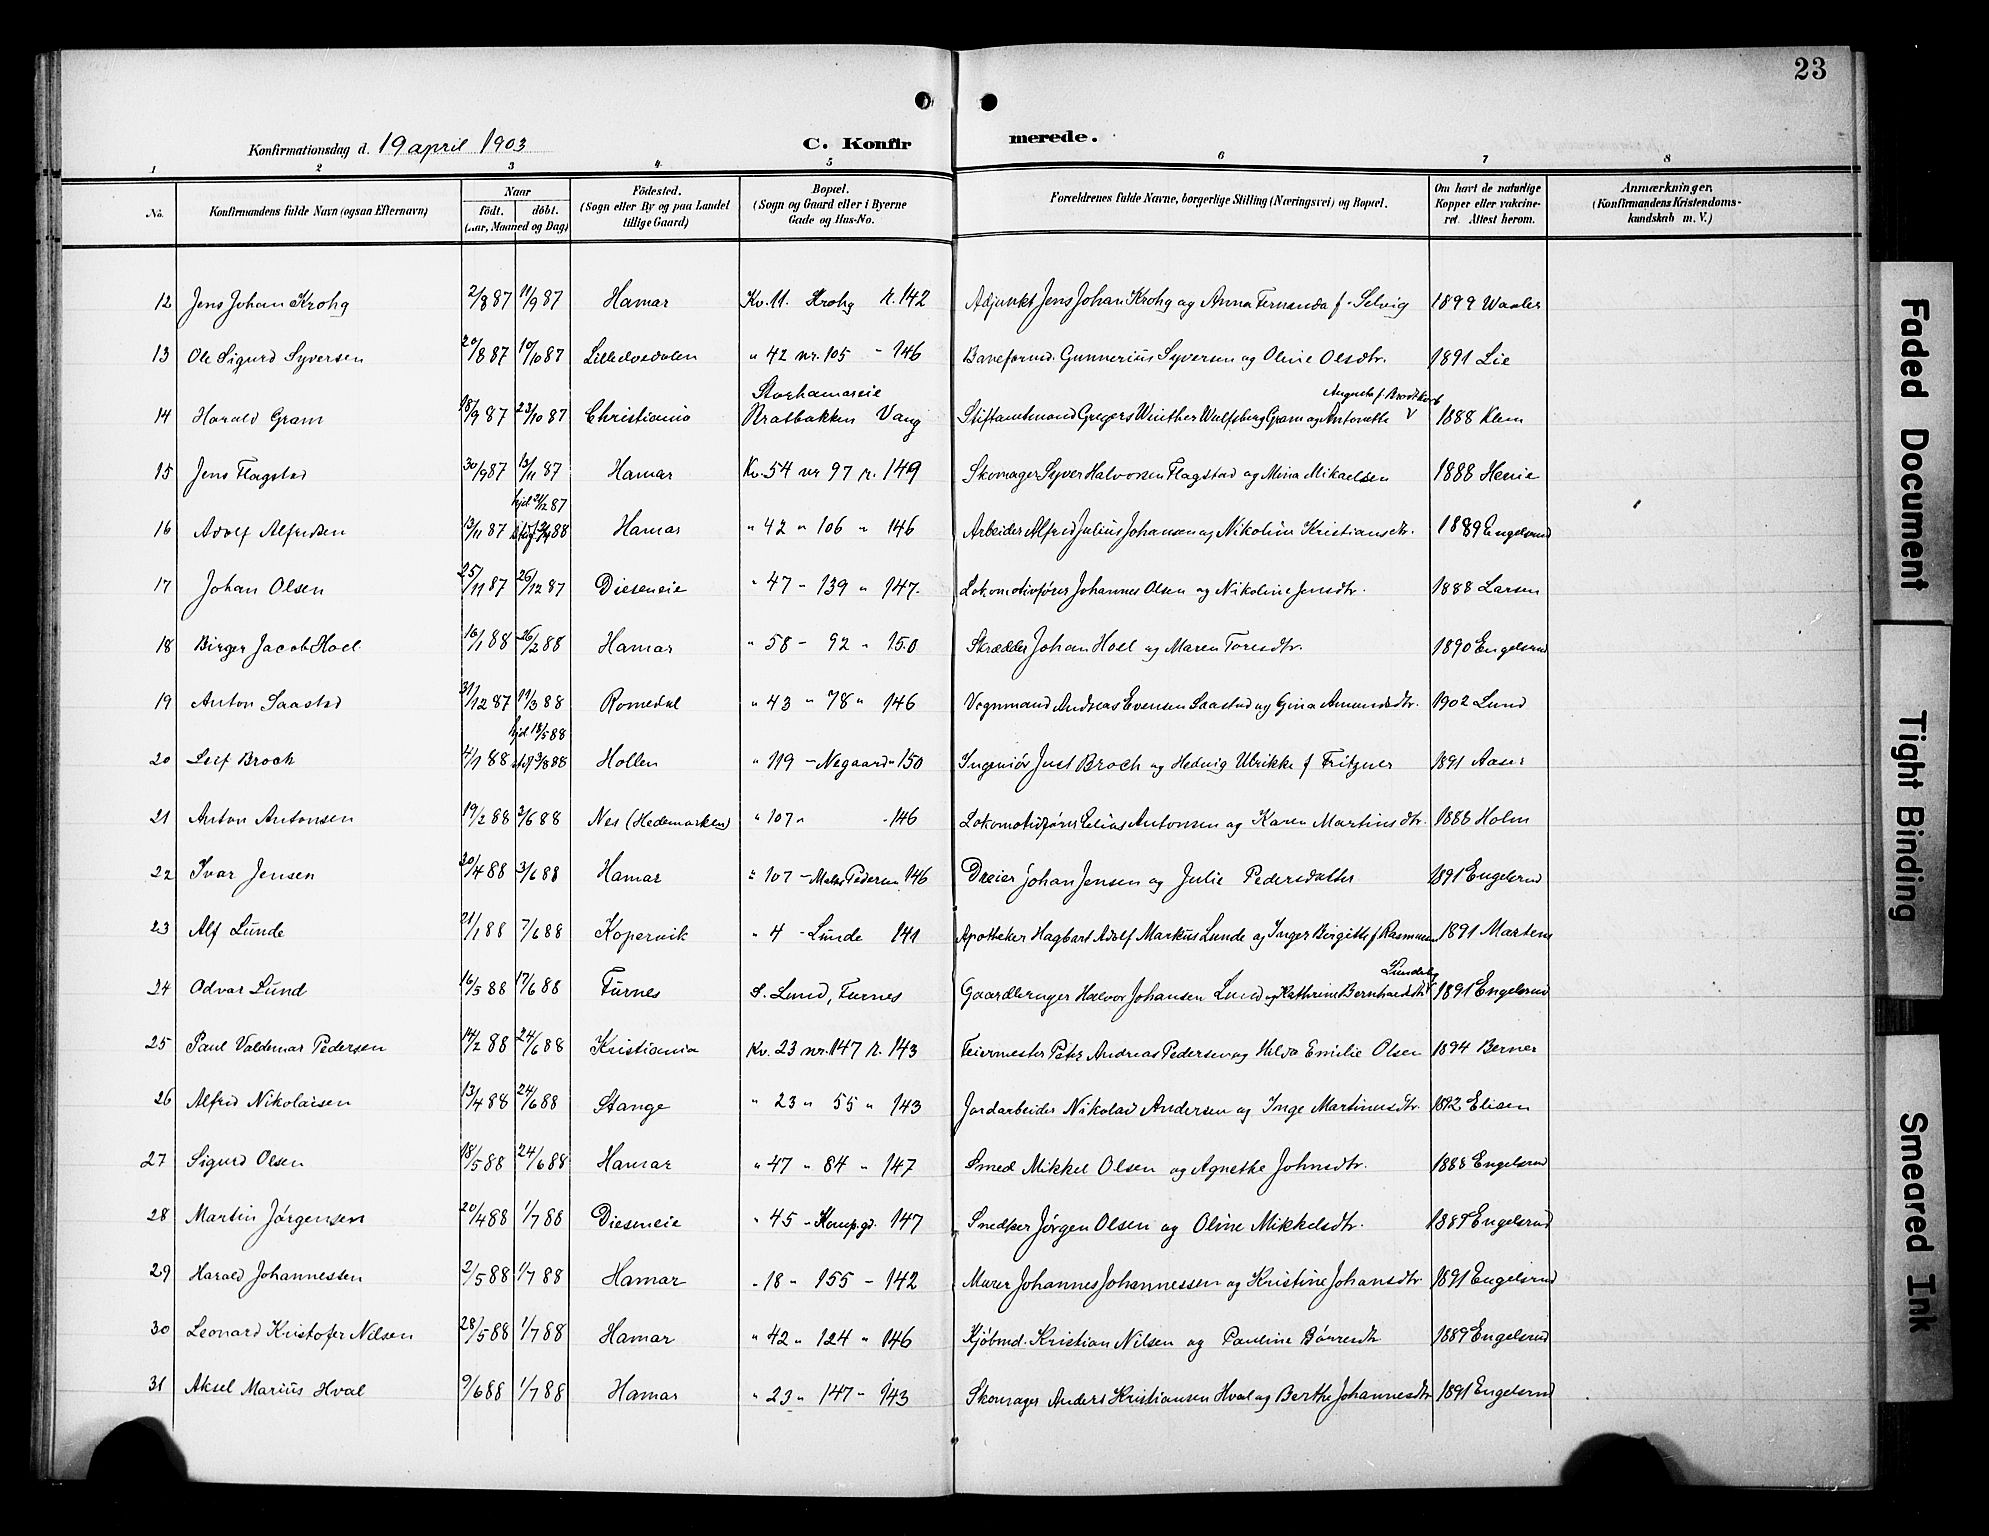 23
Konfirmationsdag d. 19 april 1903 C. Konfirmerede.
1 2 3 4 5 6 7 8
No. Konfirmandens fulde Navn (ogsaa Efternavn) Naar født. døbt. (Aar, Maaned og Dag) Fødested. (Sogn eller By og paa Landet tillige Gaard) Bopæl. (Sogn og Gaard eller i Byerne Gade og Hus-No. Forældrenes fulde Navne, borgerlige Stilling (Næringsvei) og Bopæl. Om havt de naturlige Kopper eller vakcineret. Attest herom. Anmærkninger. (Konfirmandens Kristendomskundskab m. V.)
12 Jens Johan Krohg 2/8 87 11/9 87 Hamar Kv. 11. Krohg r. 142 Adjunkt Jens Johan Krohg og Anna Fernanda f. Selvig 1899 Waaler
13 Ole Sigurd Syversen 20/8 87 10/10 87 Lilleelvedalen " 42 nr. 105 - 146 Baneformd. Gunnerius Syversen og Oline Olsdtr. 1891 Lie
14 Harald Gram 18/9 87 23/10 87 Christiania Storhamareie Bratbakken Vang Stiftamtmand Gregers Winther Wulfsberg Gram og Antonette Augusta f. Brodtkorb 1888 Klem
15 Jens Flagstad 30/9 87 13/11 87 Hamar Kv. 54 nr 97 r. 149 Skomager Syver Halvorsen Flagstad og Mina Mikaelsen 1888 Henie
16 Adolf Alfredsen 13/11 87 hjd 21/12 87 88 Hamar " 42 " 106 " 146 Arbeider Alfred Julius Johansen og Nikoline Kristiansdtr. 1889 Engelsrud
17 Johan Olsen 25/11 87 26/12 87 Dieseneie " 47 - 139 " 147. Lokomotivfører Johannes Olsen og Nikoline Jensdtr. 1888 Larsen
18 Birger Jacob Hoel 16/1 88 26/2 88 Hamar " 58 - 92 " 150 Skrædder Johan Hoel og Maren Toresdtr. 1890 Engelsrud
19 Anton Saastad 31/12 87 11/3 88 Romedal " 43 " 78 " 146 Vognmand Andreas Evensen Saastad og Gina Amundsdtr. 1902 Lund
20 Leif Broch 4/1 88 hjd 18/5 88 3/8 88 Hollen " 119 - Negaard " 150 Ingeniør Just Broch og Hedvig Ulrikke f Fritzner 1891 Aaser
21 Anton Antonsen 19/2 88 3/6 88 Nes (Hedemarken) " 107 " - 146 Lokomotivfører Elias Antonsen og Karen Martinsdtr. 1888 Holm
22 Ivar Jensen 30/4 88 3/6 88 Hamar " 107 - Maler Pedersen 146 Dreier Johan Jensen og Julie Pedersdatter 1891 Engelsrud
23 Alf Lunde 21/1 88 7/6 88 Kopervik " 4 - Lunde 141 Apotheker Hagbart Adolf Markus Lunde og Inger Birgitte f Rasmussen 1891 Martens
24 Odvar Lund 16/5 88 17/6 88 Furnes S. Lund, Furnes Gaardbruger Halvor Johansen Lund og Kathrine Bernhardsdtr Lundeby 1891 Engelsrud
25 Paul Valdemar Pedersen 14/2 88 24/6 88 Kristiania Kv. 23 nr. 147 r. 143 Feiermester Peter Andreas Pedersen og Hilda Emilie Olsen 1894 Berner
26 Alfred Nikolaisen 13/4 88 24/6 88 Stange " 23 " 55 " 143 Jordarbeider Nikolai Andersen og Inge Martinusdtr. 1892 Elisen
27 Sigurd Olsen 18/5 88 24/6 88 Hamar " 47 " 84 " 147 Smed Mikkel Olsen og Agnethe Johnsdtr. 1888 Engelsrud
28 Martin Jørgensen 20/4 88 1/7 88 Dieseneie " 45 - Komp.gd. 147 Snedker Jørgen Olsen og Oline Mikkelsdtr. 1889 Engelsrud
29 Harald Johannessen 2/5 88 1/7 88 Hamar " 18 " 155 - 142 Murer Johannes Johannessen og Kristine Johansdtr 1891 Engelsrud
30 Leonard Kristofer Nilsen 28/5 88 1/7 88 Hamar " 42 " 124 " 146 Kjøbmd. Kristian Nilsen og Pauline Børresdtr 1889 Engelsrud
31 Aksel Marius Hval 9/6 88 1/7 88 Hamar " 23 " 147 - 143 Skomager Anders Kristiansen Hval og Berthe Johannesdtr 1891 Engelsrud
Faded Document
Tight Binding
Smeared Ink